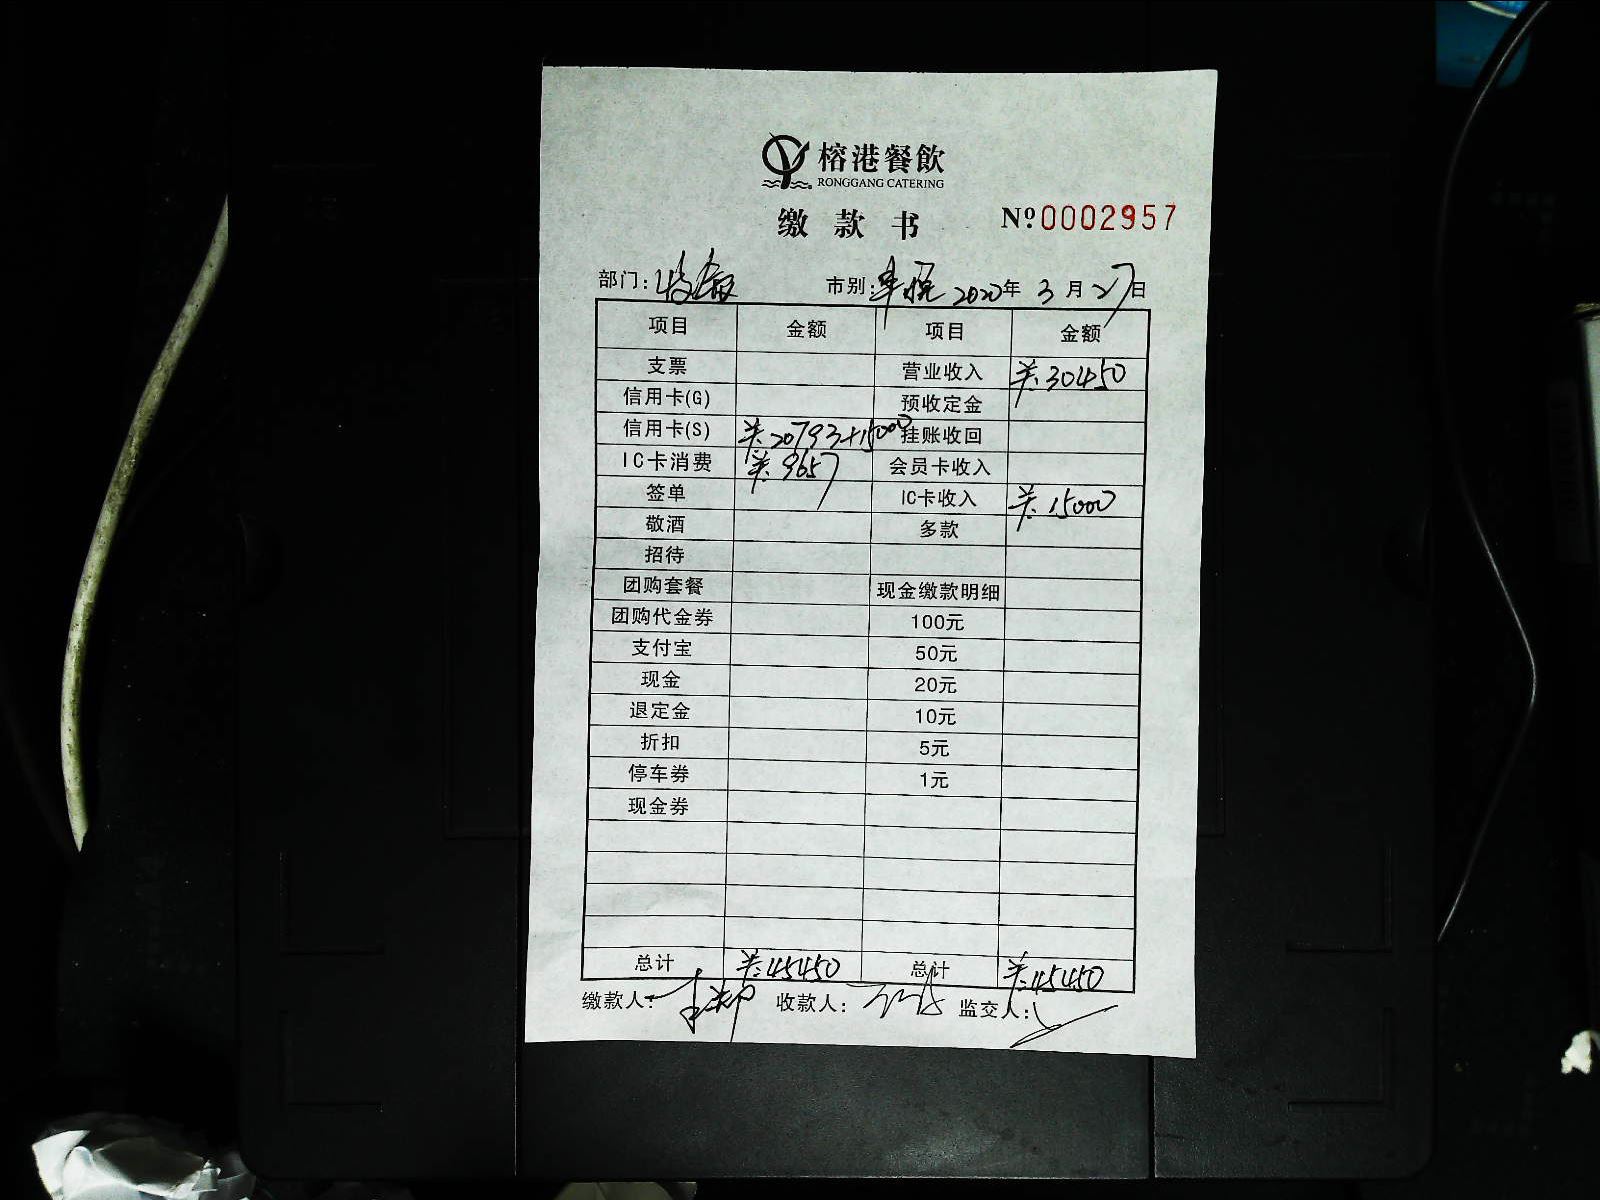 榕港餐飲
RONGGANG CATERING
缴款书 №0002957
部门: 市别: 2020年3月27日
项目 金额 项目 金额
支票 营业收入 ¥:30450
信用卡(G) 预收定金
信用卡(S) ¥:20793+15000 挂账收回
IC卡消费 ¥:9657 会员卡收入
签单 IC卡收入 ¥:15000
敬酒 多款
招待
团购套餐 现金缴款明细
团购代金券 100元
支付宝 50元
现金 20元
退定金 10元
折扣 5元
停车券 1元
现金券
总计 ¥:45450 总计 ¥:45450
缴款人: 收款人: 监交人: